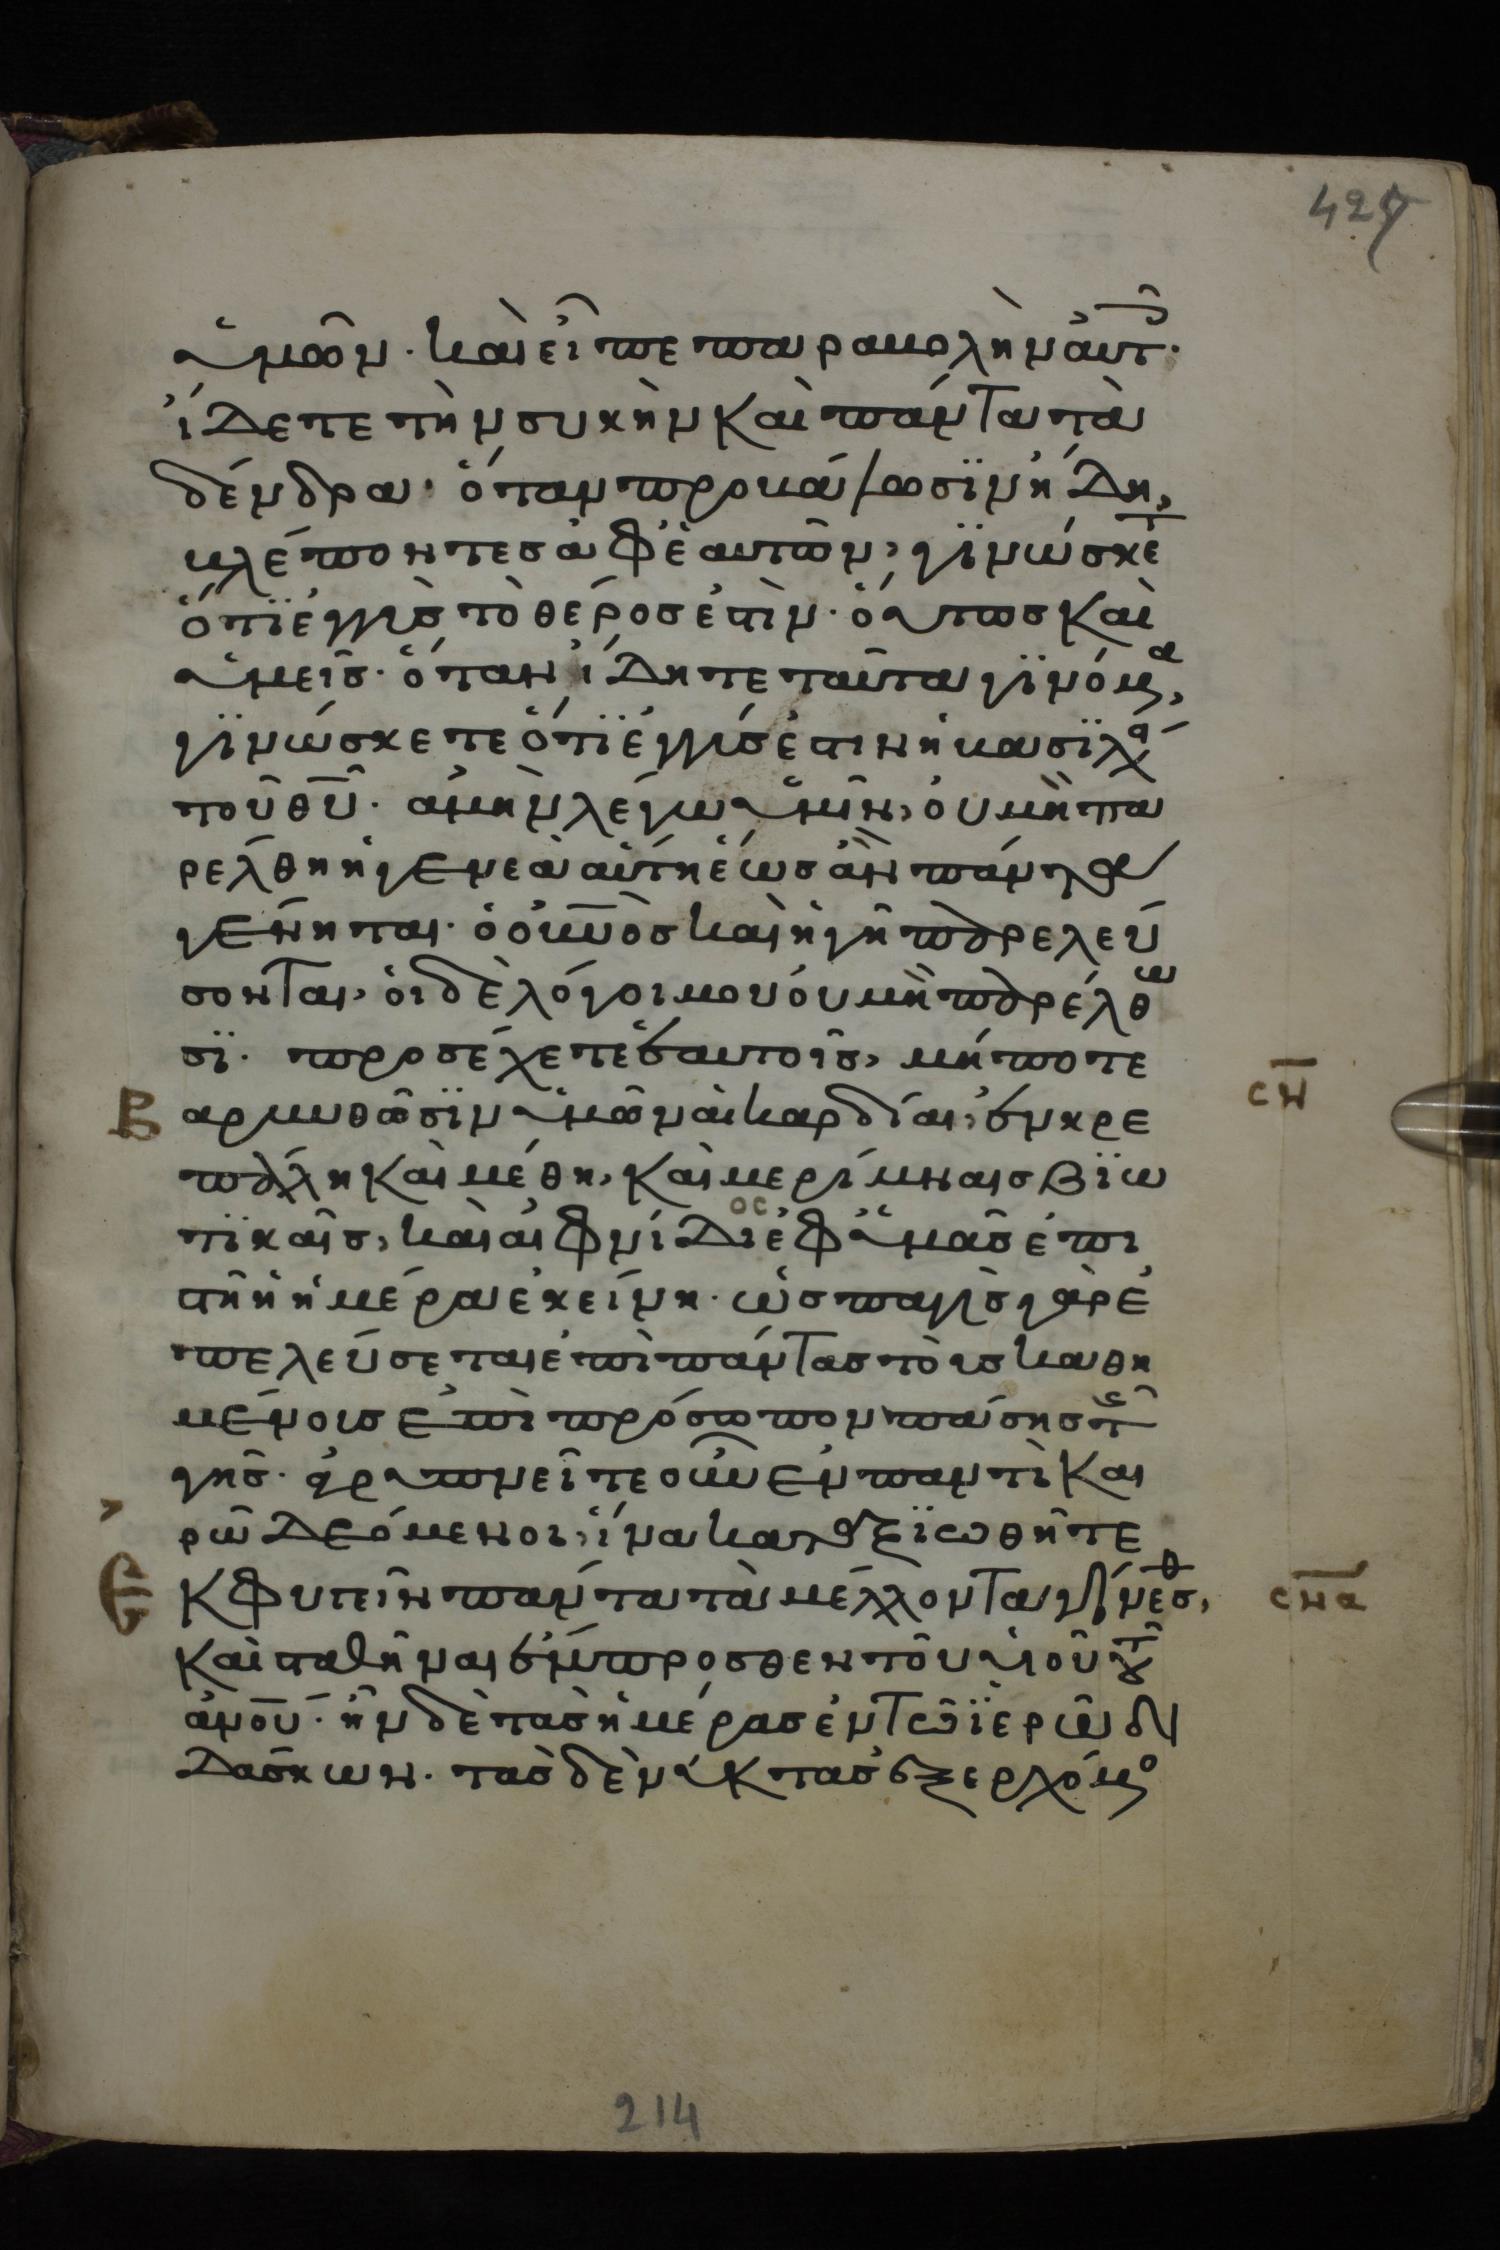 427
ὑμῶν· καὶ εἶπε παραβολὴν αὐτ·
ἴδετε τὴν συκὴν καὶ πάντα τὰ
δένδρα· ὅταν προβάλωσϊν ἤδη,
βλέποντες ἀφ' ἑαυτῶν, γϊνώσκετ
ὅτϊ ἐγγὺς τὸ θέρος ἐστὶν· οὕτως καὶ
ὑμεῖς· ὅταν ἴδητε ταῦτα γϊνόμενα,
γϊνώσκετε ὅτϊ ἐγγύς ἐστιν ἡ βασϊλεία
τοῦ θῦ· ἀμὴν λέγω ὑμῖν, οὐ μὴ πα
ρέλθη ἡ γενεὰ αὕτη ἕως ἂν πάντα
γένηται· ὁ οὐνὸς καὶ ἡ γῆ παρελεύ
σονται, οἱ δὲ λόγοι μου οὐ μὴ παρέλθω
σϊ· προσέχετε ἑαυτοῖς, μήποτε
Β αρυνθῶσϊν ὑμῶν αἱ καρδίαι, ἐν κρε ση
πάλη καὶ μέθη, καὶ μερίμναις βϊω
τϊκαῖς, καὶ αἰφνίδιος ἐφ' ὑμᾶς ἐπι
στῆ ἡ ἡμέρα ἐκείνη· ὡς παγὶς γὰρ ἐ
πελεύσεται ἐπὶ πάντας τοὺς καθη
μένους ἐπὶ πρόσωπον πάσης τῆς
γῆς· ἀγρυπνεῖτε οὖν ἐν παντὶ και
ρῶ δεόμενοι, ἵνα καταξϊωθῆτε
Ἐ κφυγεῖν πάντα τὰ μέλλοντα γίνεσθ, σηα
καὶ σταθῆναι ἔμπροσθεν τοῦ υἱοῦ τοῦ
ἀνοῦ· ἦν δὲ τὰς ἡμέρας ἐν τῶ ϊερῶ δι
δάσκων· τὰς δὲ νύκτας ἐξερχόμενο
214